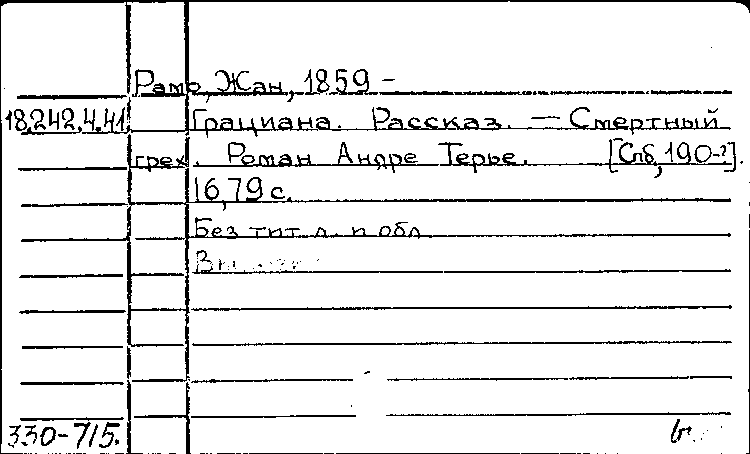 Рамо, Жан, 1859 –
18.242.4.41. Грациана. Рассказ. — Смертный
грех. Роман Андре Терье. [Спб, 190-?].
16, 79 с.
Без тит. л. и обл.
330-715.